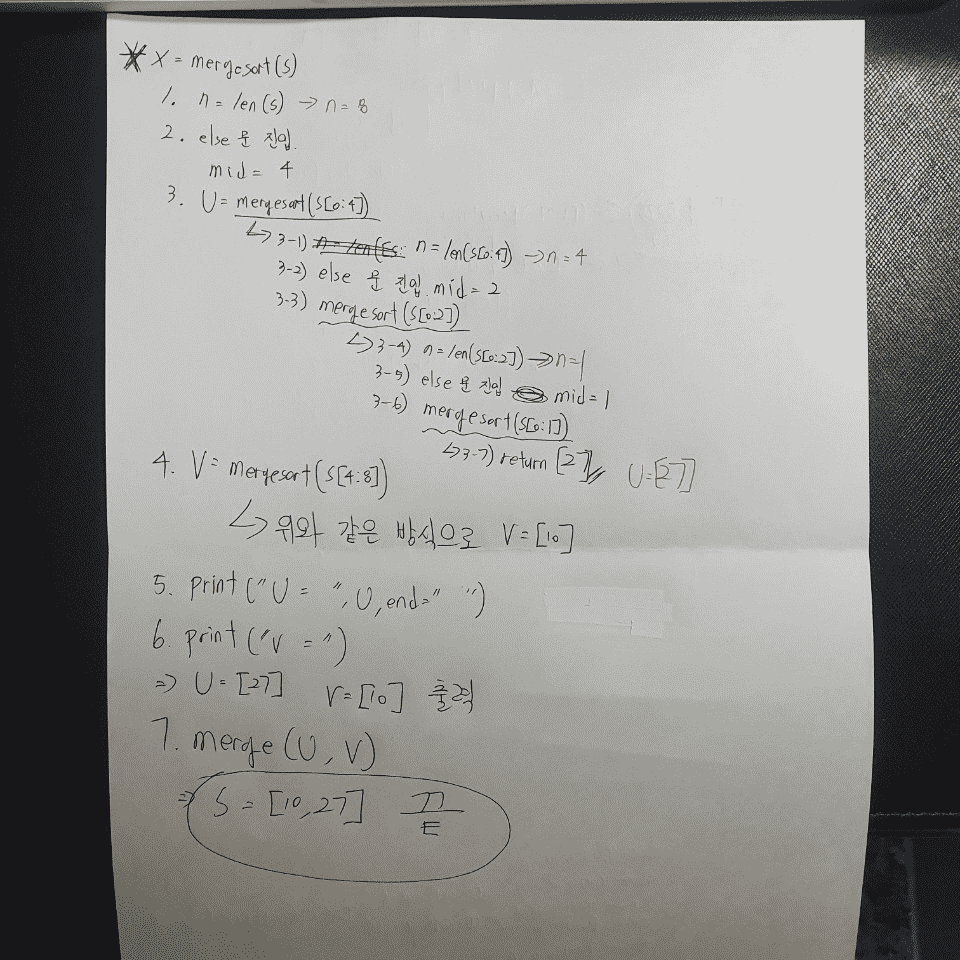 * X = mergesort(S)
1. n = len(S) → n = 8
2. else 문 진입.
mid = 4
3. U = mergesort(S[0:4])
↳ 3-1) n = len(S[0:4]) → n = 4
3-2) else 문 진입. mid = 2
3-3) mergesort(S[0:2])
↳ 3-4) n = len(S[0:2]) → n = 1
3-5) else 문 진입 mid = 1
3-6) mergesort(S[0:1])
↳ 3-7) return [27] U=[27]
4. V = mergesort(S[4:8])
↳ 위와 같은 방식으로 V = [10]
5. print("U = ", U, end=" ")
6. print("V = ")
⇒ U = [27] V = [10] 출력
7. merge(U, V)
⇒ S = [10, 27] 끝